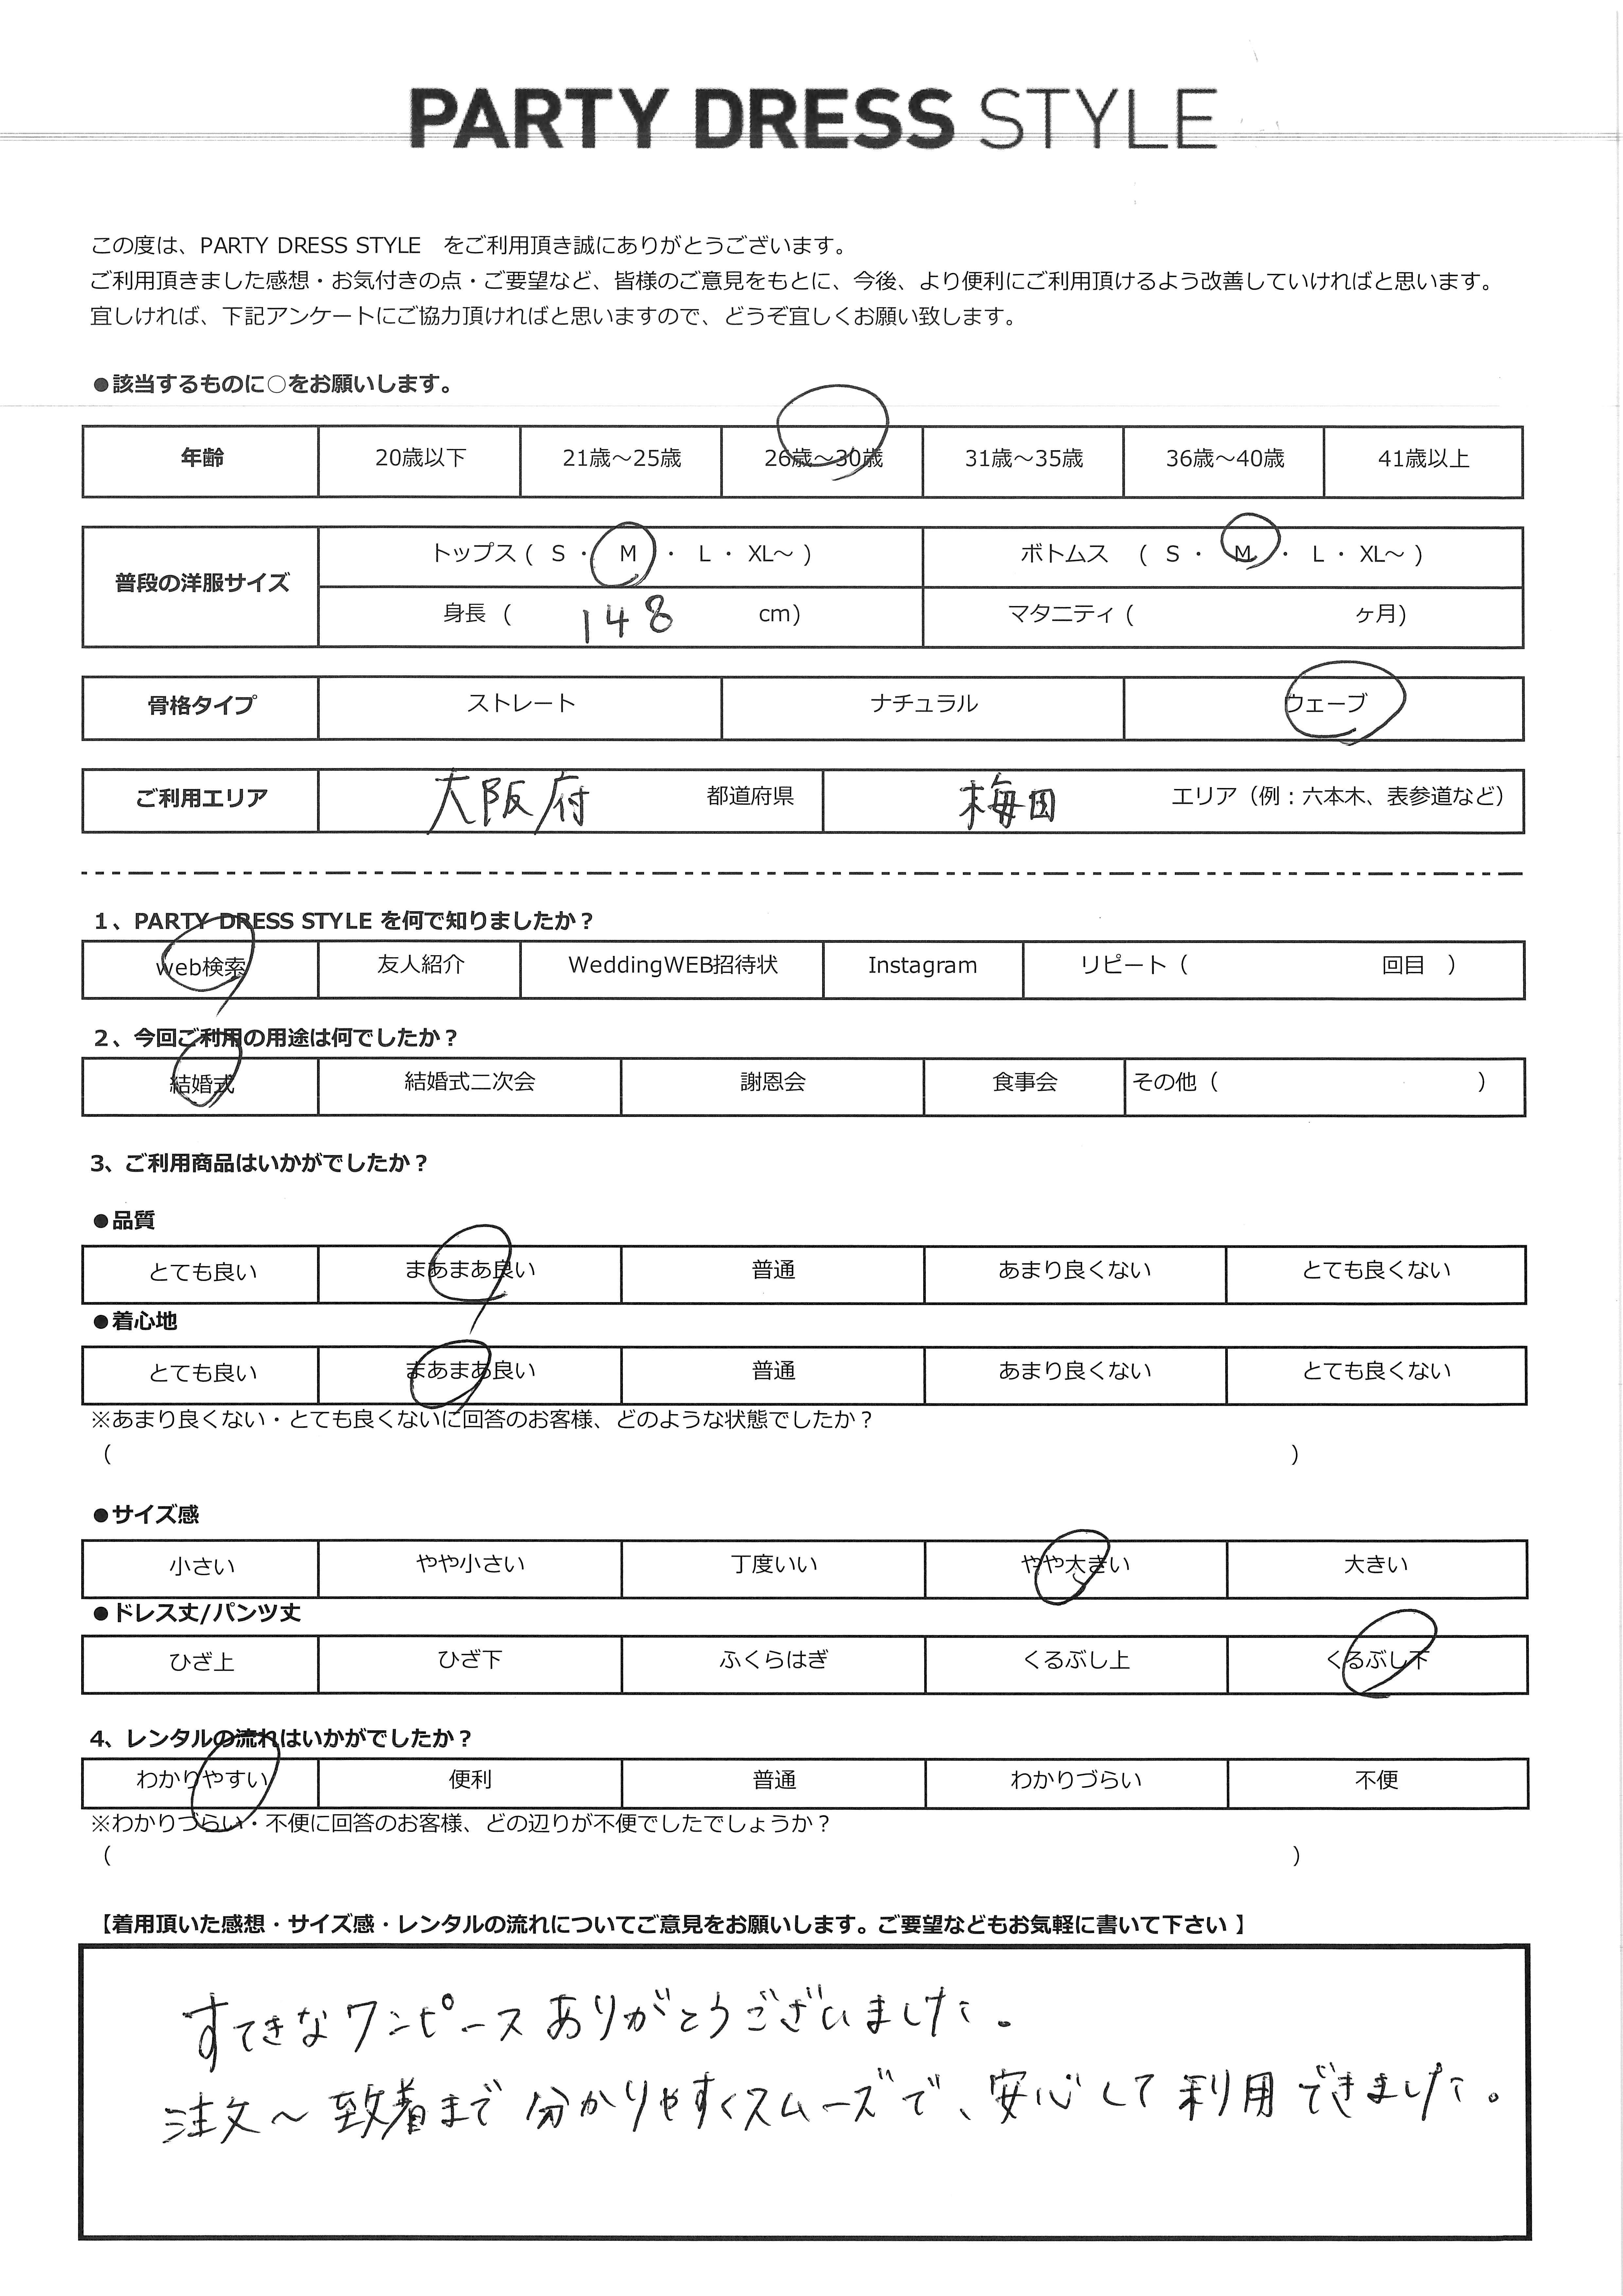 PARTY DRESS STYLE
この度は、PARTY DRESS STYLE をご利用頂き誠にありがとうございます。
ご利用頂きました感想・お気付きの点・ご要望など、皆様のご意見をもとに、今後、より便利にご利用頂けるよう改善していければと思います。
宜しければ、下記アンケートにご協力頂ければと思いますので、どうぞ宜しくお願い致します。
●該当するものに○をお願いします。
年齢 20歳以下 21歳～25歳 26歳～30歳 31歳～35歳 36歳～40歳 41歳以上
普段の洋服サイズ トップス ( S ・ M ・ L ・ XL～ ) ボトムス ( S ・ M ・ L ・ XL～ )
身長 ( 148 cm) マタニティ ( ヶ月)
骨格タイプ ストレート ナチュラル ウェーブ
ご利用エリア 大阪府 都道府県 梅田 エリア（例：六本木、表参道など）
1、PARTY DRESS STYLE を何で知りましたか？
web検索 友人紹介 WeddingWEB招待状 Instagram リピート（ 回目 ）
2、今回ご利用の用途は何でしたか？
結婚式 結婚式二次会 謝恩会 食事会 その他（ ）
3、ご利用商品はいかがでしたか？
●品質
とても良い まあまあ良い 普通 あまり良くない とても良くない
●着心地
とても良い まあまあ良い 普通 あまり良くない とても良くない
※あまり良くない・とても良くないに回答のお客様、どのような状態でしたか？
（ ）
●サイズ感
小さい やや小さい 丁度いい やや大きい 大きい
●ドレス丈/パンツ丈
ひざ上 ひざ下 ふくらはぎ くるぶし上 くるぶし下
4、レンタルの流れはいかがでしたか？
わかりやすい 便利 普通 わかりづらい 不便
※わかりづらい・不便に回答のお客様、どの辺りが不便でしたでしょうか？
（ ）
【着用頂いた感想・サイズ感・レンタルの流れについてご意見をお願いします。ご要望などもお気軽に書いて下さい 】
すてきなワンピースありがとうございました。
注文～到着まで分かりやすくスムーズで、安心して利用できました。